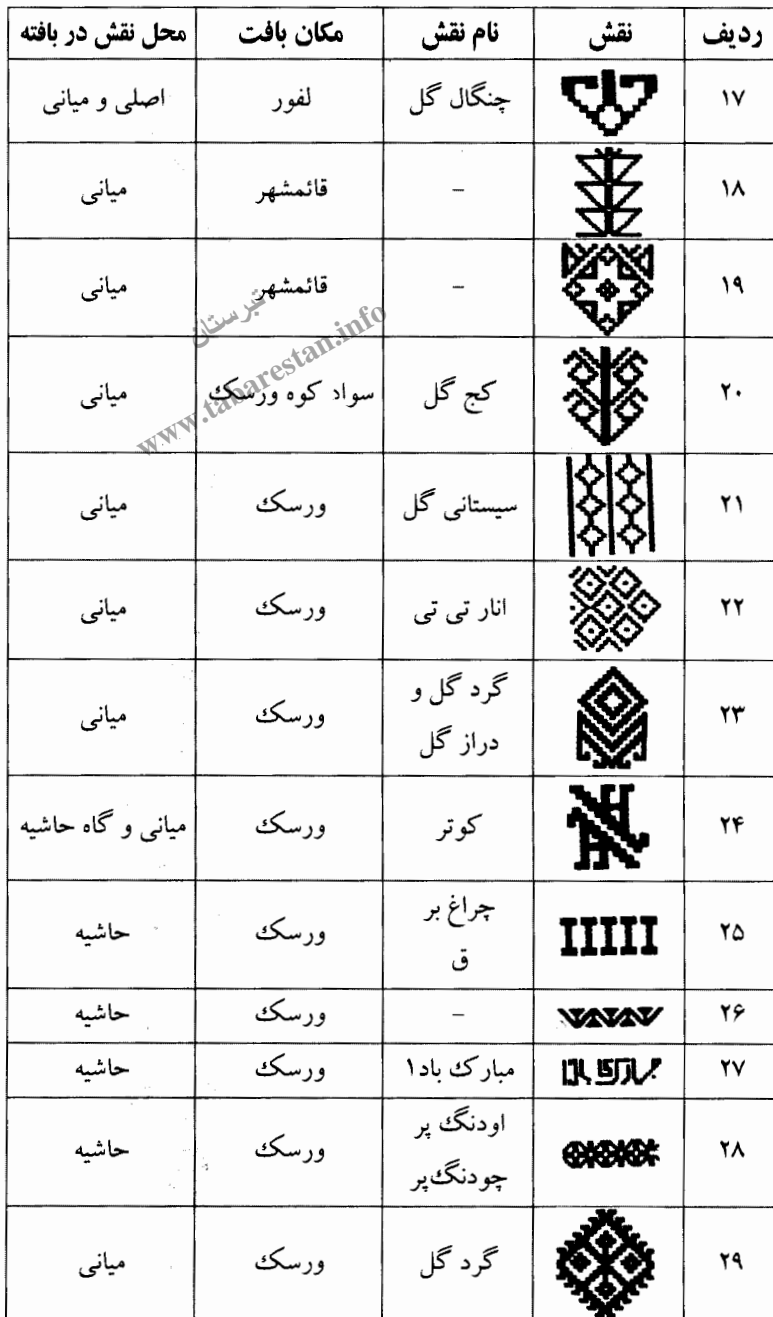 ردیف نقش نام نقش مکان بافت محل نقش در بافته
۱۷ چنگال گل لفور اصلی و میانی
۱۸ – قائمشهر میانی
۱۹ – قائمشهر میانی
تبرستان
www.tabarestan.info
۲۰ کج گل سواد کوه ورسک میانی
۲۱ سیستانی گل ورسک میانی
۲۲ انار تی تی ورسک میانی
۲۳ گرد گل و
دراز گل ورسک میانی
۲۴ کوتر ورسک میانی و گاه حاشیه
۲۵ چراغ بر
ق ورسک حاشیه
۲۶ – ورسک حاشیه
۲۷ مبارک باد۱ ورسک حاشیه
۲۸ اودنگ پر
چودنگ‌پر ورسک حاشیه
۲۹ گرد گل ورسک میانی